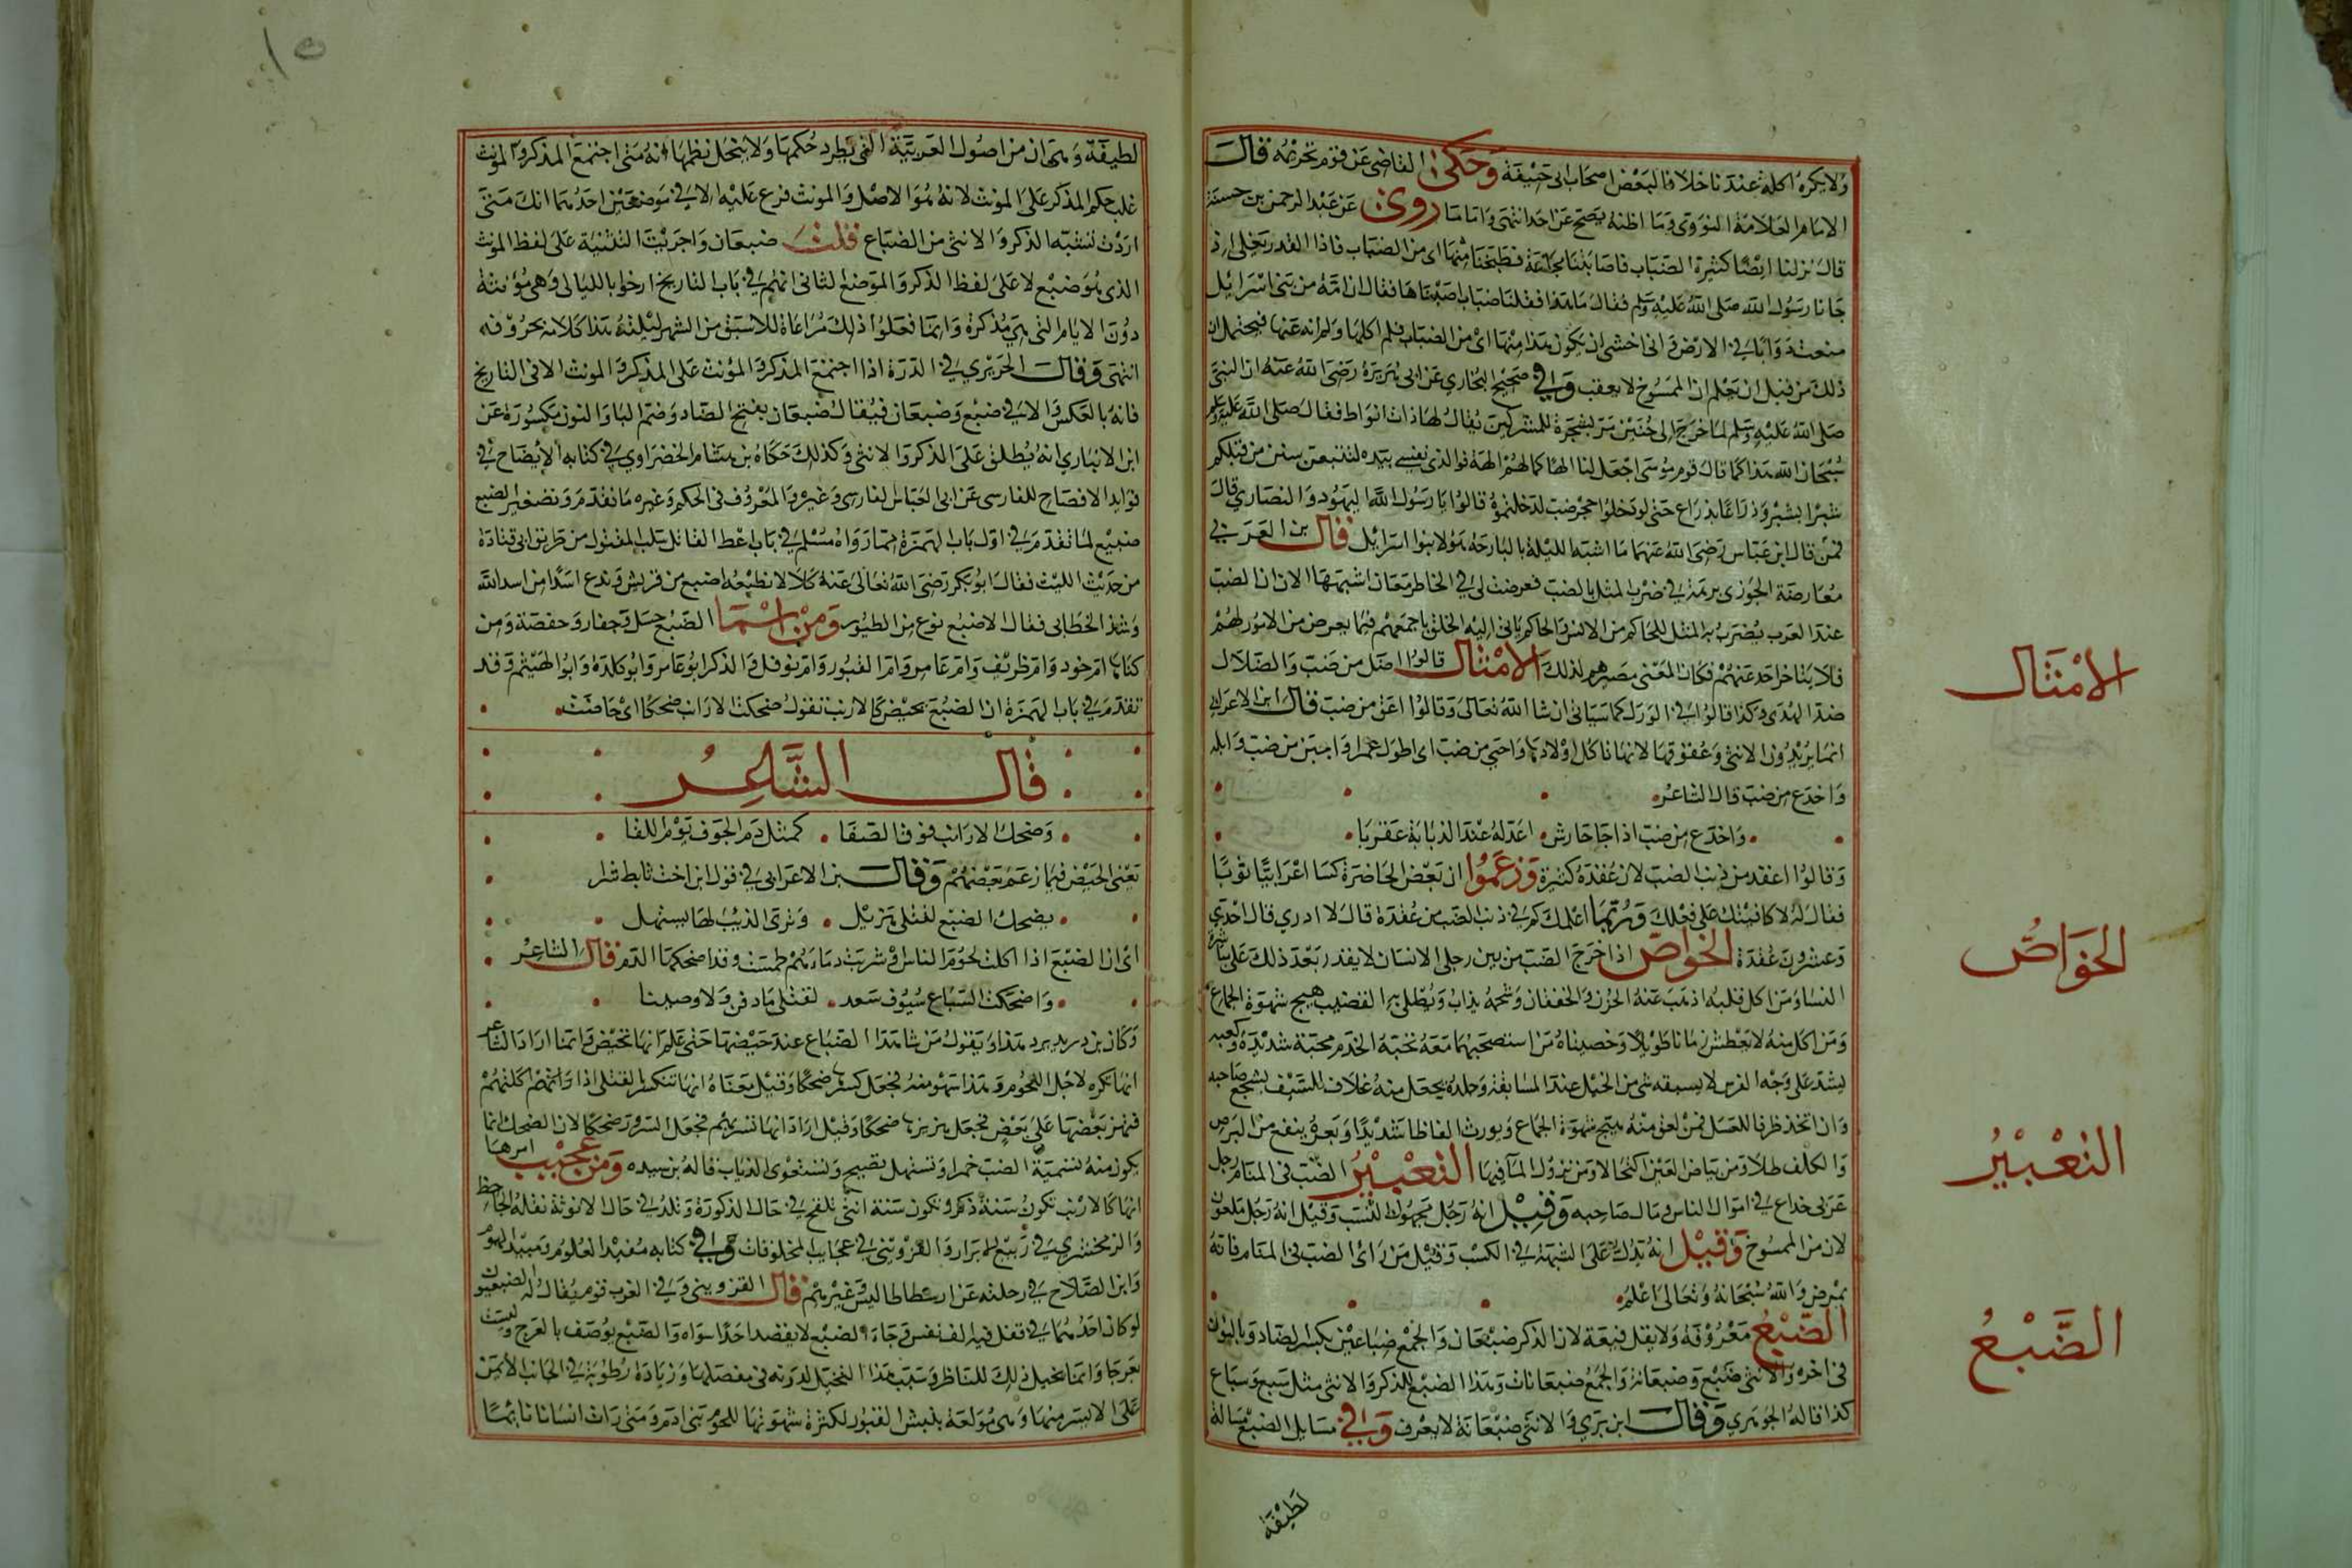 ولا يكره اكله عندنا خلافا لبعض اصحاب ابى حنيفة وحكى القاضى عن قوم تحريمه قال
الامام العلامة النووى وما اظنه يصح عن احد انتهى واما ما روى عن عبد الرحمن بن حسنة
قال نزلنا ارضا كثيرة الضباب فاصابتنا مجاعة فطبخنا منها اى من الضباب فاذا القدر تغلى اذ
جانا رسول الله صلى الله عليه وسلم فقال ما هذا فقلنا ضباب اصبناها فقال ان امة من بنى اسرائيل
مسخت دوابا في الارض وانى اخشى ان يكون هذا منها اى من الضباب فلم اكلها ولم انه عنها فيحتمل ان
ذلك من قبل ان يعلم ان الممسوخ لا يعقب وفي صحيح البخاري عن ابى هريرة رضى الله عنه ان النبى
صلى الله عليه وسلم لما خرج الى حنين مر بشجرة للمشركين يقال لها ذات انواط فقال صلى الله عليه وسلم
سبحان الله هذا كما قال قوم موسى اجعل لنا الها كما لهم الهة فوالذى نفسى بيده لتتبعن سنن من قبلكم
شبرا بشبر وذراعا بذراع حتى لو دخلوا جحر ضب لدخلتموه قالوا يا رسول الله اليهود والنصارى قال
فمن قال ابن عباس رضى الله عنهما ما اشبه الليلة بالبارحة هؤلا بنوا اسرائيل قال بن العربي
معارضة الجوزى برمته في ضرب المثل بالضب فعرضت لى في الخاطر معان اشبهها الان ان الضب
عند العرب يضرب به المثل للحاكم من الانس والحاكم ياتى اليه الخلق باجمعهم فيما يعرض من الامور لهم
فلا يتاخر احد عنهم فكان المعنى مصيرهم لذلك الامثال قالوا اضل من ضب والضلال
ضد الهدى وكذا قالوا في الورل كما سياتى ان شا الله تعالى وقالوا اعق من ضب قال ابن الاعرابي
انما يريدون الانثى وعقوقها لانها تاكل اولادها واحيى من ضب اى اطول عمرا واجبن من ضب وابله
واخدع من ضب قال الشاعر
واخدع من ضب اذا جا حارش اعد له عند الذبابة عقربا
وقالوا اعقد من ذنب الضب لان عقده كثيرة وزعموا ان بعض الحاضرة كسا اعرابيا ثوبا
فقال له لاكافينك على فعلك وربما اعلمك كم في ذنب الضب من عقدة قال لا ادرى قال احدى
وعشرون عقدة الخواص اذا خرج الضب من بين رجلى الانسان لا يقدر بعد ذلك على مباشرة
النسا ومن اكل قلبه اذهب عنه الحزن والخفقان وشحمه يذاب ويطلى به القضيب يهيج شهوة الجماع
ومن اكل منه لا يعطش زمانا طويلا وخصيتاه من استصحبهما معه تحبه الخدم محبة شديدة وكعبه
يشد على وجه الفرس لا يسبقه شى من الخيل عند المسابقة وجلده يجعل منه غلاف للسيف يشجع صاحبه
وان اتخذ ظرفا للعسل فمن لعق منه هيج شهوة الجماع ويورث انعاظا شديدا وبعره ينفع من البرص
والكلف طلا ومن بياض العين كتحالا ومن نزول الما فيها التعبير الضب في المنام رجل
عربى خداع في اموال الناس ومال صاحبه وقيل انه رجل مجهول النسب وقيل انه رجل ملعون
لان من الممسوخ وقيل انه يدل على الشبهة في الكسب وقيل من راى الضب في المنام فانه
يمرض والله سبحانه وتعالى اعلم
الضبع معروفة ولا يقل ضبعة لان الذكر ضبعان والجمع ضباعين بكسر الضاد وبالنون
فى اخره والانثى ضبع وضبعانة والجمع ضبعانات وهذا الضبع للذكر والانثى مثل سبع وسباع
كذا قاله الجوهرى وقال ابن برى والانثى ضبعانة لا يعرف وفي مسايل الضبع مسالة
لطيفة
الامثال
الخواص
التعبير
الضبع
لطيفة وهى ان من اصول العربية التى يطرد حكمها ولا ينحل نظمها انه متى اجتمع المذكر والمونث
غلب حكم المذكر على المونث لانه هو الاصل والمونث فرع عليه الا في موضعين احدهما انك متى
اردت تثنية الذكر والانثى من الضباع قلت ضبعان واجريت التثنية على لفظ المونث
الذى هو ضبع لا على لفظ الذكر والموضع الثانى انهم في باب التاريخ ارخوا بالليالى وهى مؤنثة
دون الايام التى هى مذكرة وانما فعلوا ذلك مراعاة للاسبق من الشهر ليلته هذا كلامه بحروفه
انتهى وقال الحريرى في الدرة اذا اجتمع المذكر والمؤنث على المذكر والمونث الا فى التاريخ
فانه بالعكس والا في ضبع وضبعان فيقال ضبعان بفتح الضاد وضم البا والنون مكسورة عن
ابن الانبارى انه يطلق على الذكر والانثى وكذلك حكاه بن هشام الخضراوى في كتابه الايضاح في
فوايد الافصاح للفارسى عن ابى العباس الفارسى وغيره والمعروف فى الحكم وغيره ما تقدم وتصغير الضبع
ضبيع لما تقدم في اول باب الهمزة مما رواه مسلم في باب اعطا القاتل سلب المقتول من طريق ابى قتادة
من حديث الليث فقال ابو بكر رضى الله تعالى عنه كلا لا نطيعه اضيبع من قريش وندع اسدا من اسد الله
وشذ الخطابى فقال الاضبع نوع من الطيور ومن اسما الضبع جيل وجعار وحفصة ومن
كناها ام خنود وام طريف وام عامر وام القبور وام نوفل والذكر ابو عامر وابو كلدة وابو الهيثم وقد
تقدم في باب الهمزة ان الضبع تحيض كالارنب تقول ضحكت الارانب ضحكا اى حاضت
قال الشاعر
وضحك الارانب فوق الصفا كمثل دم الجوف يوم اللقا
يعنى الحيض فيما زعم بعضهم وقال بن الاعرابى في قول ابن اخت تابط شرا
يضحك الضبع لقتلى هزيل وترى الذيب لها يستهل
اى ان الضبع اذا اكلت لحوم الناس وشربت دماءهم طمست وقد اضحكها الدم قال الشاعر
واضحكت السباع سيوف سعد لقتلى مادفن ولا ودينا
وكان بن دريد يرد هذا ويقول من شاهد الضباع عند حيضها حتى علم انها تحيض وانما اراد الشاعر
انها تكره لاجل اللحوم وهذا سهو منه فجعل كسرها ضحكا وقيل معناه انها تستكثر لقتلى اذا واتهم اكلتهم
فيهز بعضها على بعض فجعل هزيزها ضحكا وقيل اراد انها تسر بهم فجعل السرور ضحكا لان الضحك انما
يكون منه كتسمية العنب خمرا وتستهل تصيح وتستعوى الذياب قاله بن سيده ومن عجيب امرها
انها كالارنب تكون سنة ذكرا وتكون سنة انثى تلقح في حال الذكورة وتلد في حال الانوثة نقله الجاحظ
والزمخشرى في ربيع الابرار والقزوينى في عجايب المخلوقات وفي كتابه مفيد العلوم ومبيد الهموم
وابن الصلاح في رحلته عن ارسطاطاليس وغيرهم قال القزوينى وفي العرب قوم يقال لهم الضبعيون
لو كان احدهما في قفل فيه الف نفس وجاءه الضبع لا يقصد احدا سواه والضبع يوصف بالعرج وليست
بعرجا وانما يخيل ذلك للناظر وسبب هذا التخيل لدونة فى مفصلها وزيادة رطوبة في الجانب الأيمن
على الايسر منها وهى مولعة بنبش القبور لكثرة شهوتها للحوم بنى ادم ومتى رات انسانا نائما